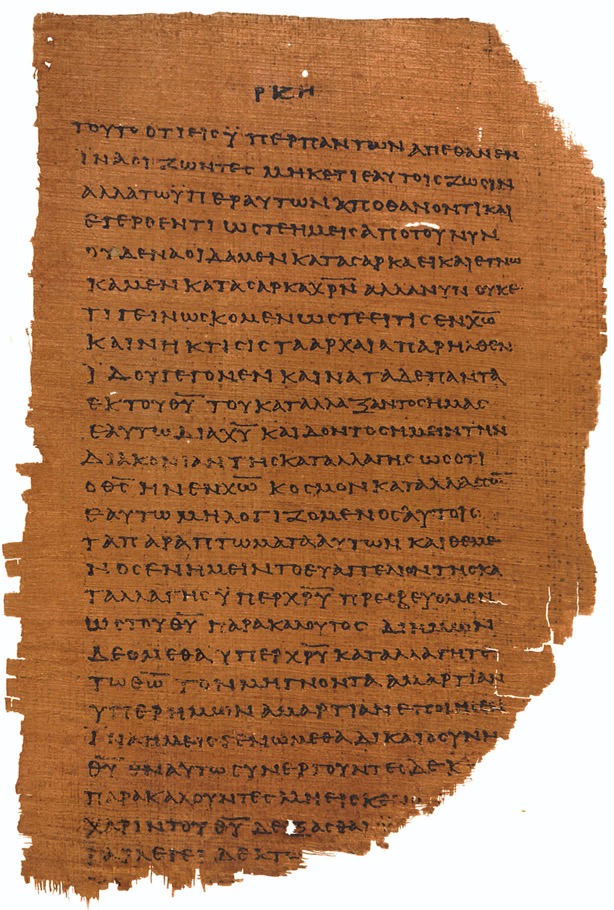 ΡΚΗ
ΤΟΥΤΟ ΟΤΙ ΕΙϹ ΫΠΕΡ ΠΑΝΤΩΝ ΑΠΕΘΑΝΕΝ
ΙΝΑ ΟΙ ΖΩΝΤΕϹ ΜΗΚΕΤΙ ΕΑΥΤΟΙϹ ΖΩϹΙΝ
ΑΛΛΑ ΤΩ ΫΠΕΡ ΑΥΤΩΝ ΑΠΟΘΑΝΟΝΤΙ ΚΑΙ
ΕΓΕΡΘΕΝΤΙ ΩϹΤΕ ΗΜΕΙϹ ΑΠΟ ΤΟΥ ΝΥΝ
ΟΥΔΕΝΑ ΟΙΔΑΜΕΝ ΚΑΤΑ ϹΑΡΚΑ ΕΙ ΚΑΙ ΕΓΝΩ
ΚΑΜΕΝ ΚΑΤΑ ϹΑΡΚΑ Χ̅Ρ̅Ν̅ ΑΛΛΑ ΝΥΝ ΟΥΚΕ
ΤΙ ΓΕΙΝΩϹΚΟΜΕΝ ΩϹΤΕ ΕΙ ΤΙϹ ΕΝ Χ̅Ω̅
ΚΑΙΝΗ ΚΤΙϹΙϹ ΤΑ ΑΡΧΑΙΑ ΠΑΡΗΛΘΕΝ
ΪΔΟΥ ΓΕΓΟΝΕΝ ΚΑΙΝΑ ΤΑ ΔΕ ΠΑΝΤΑ
ΕΚ ΤΟΥ Θ̅Υ̅ ΤΟΥ ΚΑΤΑΛΛΑΞΑΝΤΟϹ ΗΜΑϹ
ΕΑΥΤΩ ΔΙΑ Χ̅Υ̅ ΚΑΙ ΔΟΝΤΟϹ ΗΜΕΙΝ ΤΗΝ
ΔΙΑΚΟΝΙΑΝ ΤΗϹ ΚΑΤΑΛΛΑΓΗϹ ΩϹ ΟΤΙ
Ο Θ̅Ϲ̅ ΗΝ ΕΝ Χ̅Ω̅ ΚΟϹΜΟΝ ΚΑΤΑΛΛΑϹϹΩ̅
ΕΑΥΤΩ ΜΗ ΛΟΓΙΖΟΜΕΝΟϹ ΑΥΤΟΙϹ
ΤΑ ΠΑΡΑΠΤΩΜΑΤΑ ΑΥΤΩΝ ΚΑΙ ΘΕΜΕ
ΝΟϹ ΕΝ ΗΜΕΙΝ ΤΟ ΕΥΑΓΓΕΛΙΟΝ ΤΗϹ ΚΑ
ΤΑΛΛΑΓΗϹ ΫΠΕΡ Χ̅Ρ̅Υ̅ ΠΡΕϹΒΕΥΟΜΕΝ
ΩϹ ΤΟΥ Θ̅Υ̅ ΠΑΡΑΚΑΛΟΥΤΟϹ ΔΙ ΗΜΩΝ
ΔΕΟΜΕΘΑ ΫΠΕΡ Χ̅Ρ̅Υ̅ ΚΑΤΑΛΛΑΓΗΤΕ
ΤΩ Θ̅Ω̅ ΤΟΝ ΜΗ ΓΝΟΝΤΑ ΑΜΑΡΤΙΑΝ
ΥΠΕΡ ΗΜΩΝ ΑΜΑΡΤΙΑΝ ΕΠΟΙΗϹΕΝ
ΪΝΑ ΗΜΕΙϹ ΓΕΝΩΜΕΘΑ ΔΙΚΑΙΟϹΥΝΗ
Θ̅Υ̅ ΕΝ ΑΥΤΩ ϹΥΝΕΡΓΟΥΝΤΕϹ ΔΕ Κ
ΠΑΡΑΚΑΛΟΥΝΤΕϹ ΜΗ ΕΙϹ ΚΕΝΟ
ΧΑΡΙΝ ΤΟΥ Θ̅Υ̅ ΔΕΞΑϹΘΑΙ
ΓΑΡ ΛΕΓΕΙ ΔΕΚΤΩ